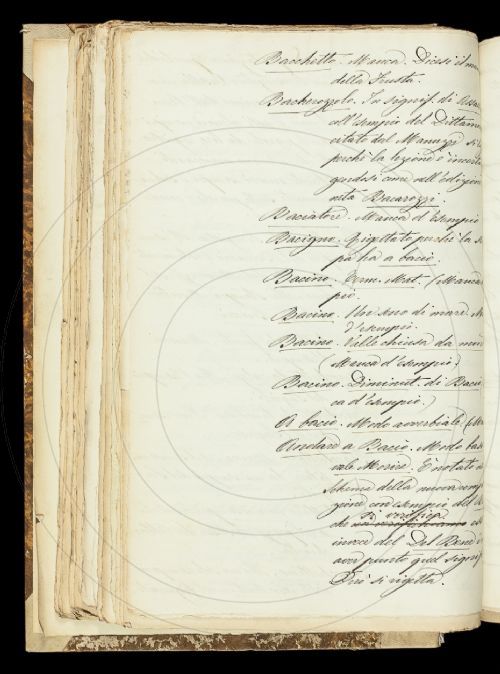 Bacchetto. Manca. Dicesi il ma
della Frusta.
Bacherozzolo. In signif. di
coll'esempio del Dittam
citato dal Manuzzi si
perchè la lezione è incerta
gendosi come nell'edizion
nata Bacarozzi.
Baciatore. Manca d'esempio
Bacigno. Rigettato perchè la
pa ha a bacìo.
Bacino. Term. Mat. (Manca
pio.
Bacino. Un seno di mare. M
d'esempio.
Bacino. Valle chiusa da
(Manca d'esempio.)
Bacino. Diminut. di Bacio
ca d'esempio.)
A bacìo. Modo avverbiale. (Ma
Andare a Bacìo. Modo
vale Morire. È notato
Schema della nuova comp
gione con esempio del
Si verifica
che
invece del Del Bene
aver punto quel signif
Però si rigetta.